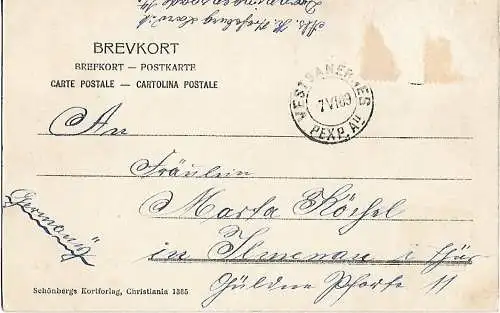 BREVKORT
BREFKORT — POSTKARTE
CARTE POSTALE — CARTOLINA POSTALE
VESTBANERNES
7 VI 09
PEXP. A
An
Fräulein
Marta Köchel
in Ilmenau i Thür
Güldne Pforte 11
Germany
Schönbergs Kortforlag, Christiania 1385